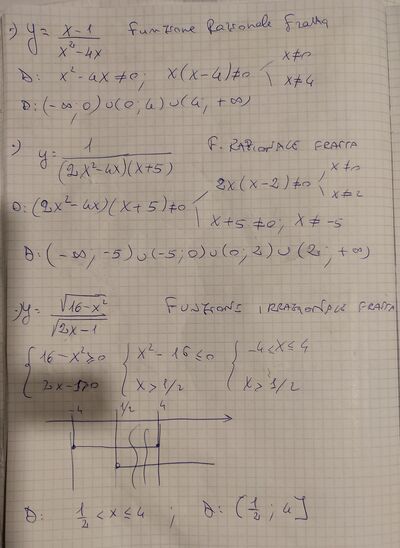 ·) y = (x-1)/(x²-4x) Funzione Razionale Fratta
D: x²-4x≠0; x(x-4)≠0 x≠0
x≠4
D: (-∞, 0) ∪ (0; 4) ∪ (4; +∞)
·) y = 1/((2x²-4x)(x+5)) F. RAZIONALE FRATTA
D: (2x²-4x)(x+5)≠0 2x(x-2)≠0 x≠0
x≠2
x+5≠0; x≠-5
D: (-∞, -5) ∪ (-5; 0) ∪ (0; 2) ∪ (2; +∞)
·) y = √(16-x²)/√(2x-1) FUNZIONE IRRAZIONALE FRATTA
{ 16-x²≥0 { x²-16≤0 { -4≤x≤4
2x-1>0 x>1/2 x>1/2
-4 1/2 4
D: 1/2 < x ≤ 4 ; D: (1/2; 4]